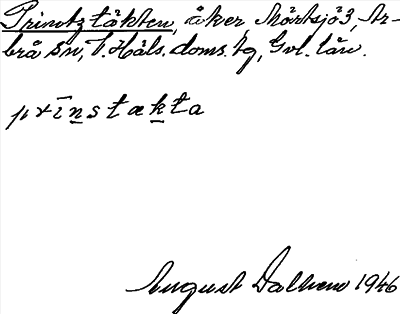 Printztäkten, åker, Mårtsjö3, Ar-
brå sn, V. Häls. doms. tg, Gvl. län.
prīnstækta
August Dalhem 1946